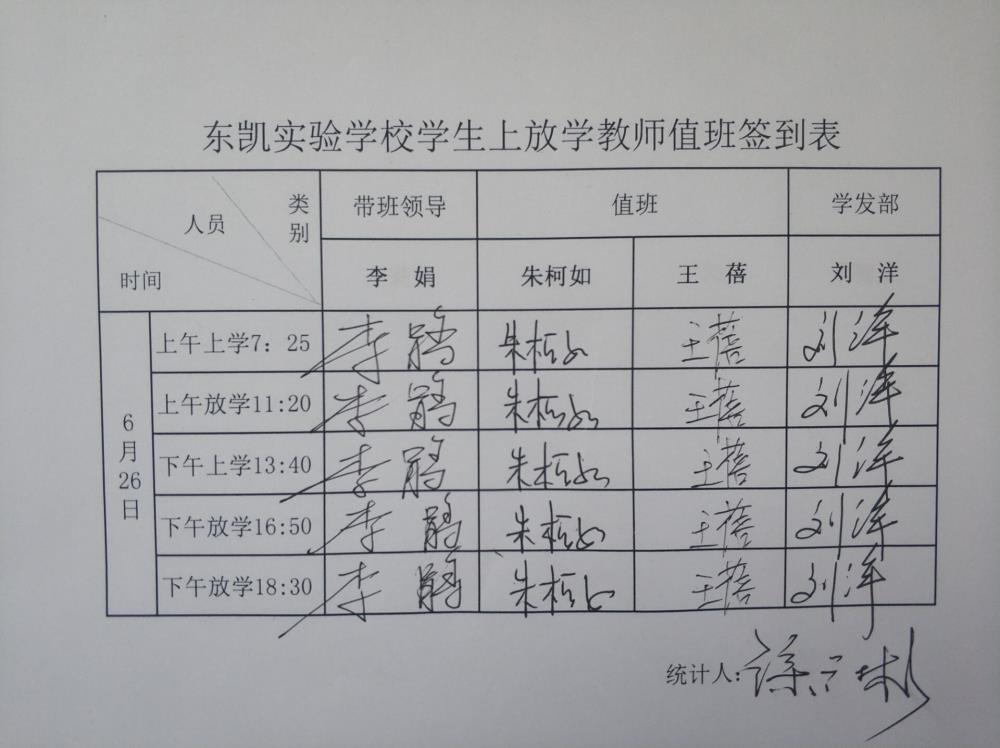 东凯实验学校学生上放学教师值班签到表
类别 人员 时间 带班领导 值班 学发部
李 娟 朱柯如 王 蓓 刘 洋
6月26日
上午上学7：25 李娟 朱柯如 王蓓 刘洋
上午放学11:20 李娟 朱柯如 王蓓 刘洋
下午上学13:40 李娟 朱柯如 王蓓 刘洋
下午放学16:50 李娟 朱柯如 王蓓 刘洋
下午放学18:30 李娟 朱柯如 王蓓 刘洋
统计人：